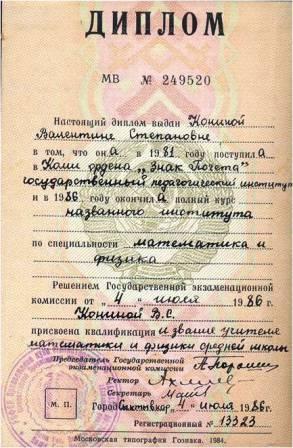 ДИПЛОМ
МВ № 249520
Настоящий диплом выдан Кониной
Валентине Степановне
в том, что она в 1981 году поступила
в Коми ордена „Знак Почета"
государственный педагогический институт
и в 1986 году окончила полный курс
названного института
по специальности математика и
физика
Решением Государственной экзаменационной
комиссии от „4" июля 1986 г.
Кониной В.С.
присвоена квалификация и звание учителя
математики и физики средней школы
Председатель Государственной
экзаменационной комиссии
Ректор
Секретарь
М. П.
Город Сыктывкар 4 июля 1986 г.
Регистрационный № 13323
Московская типография Гознака. 1984.